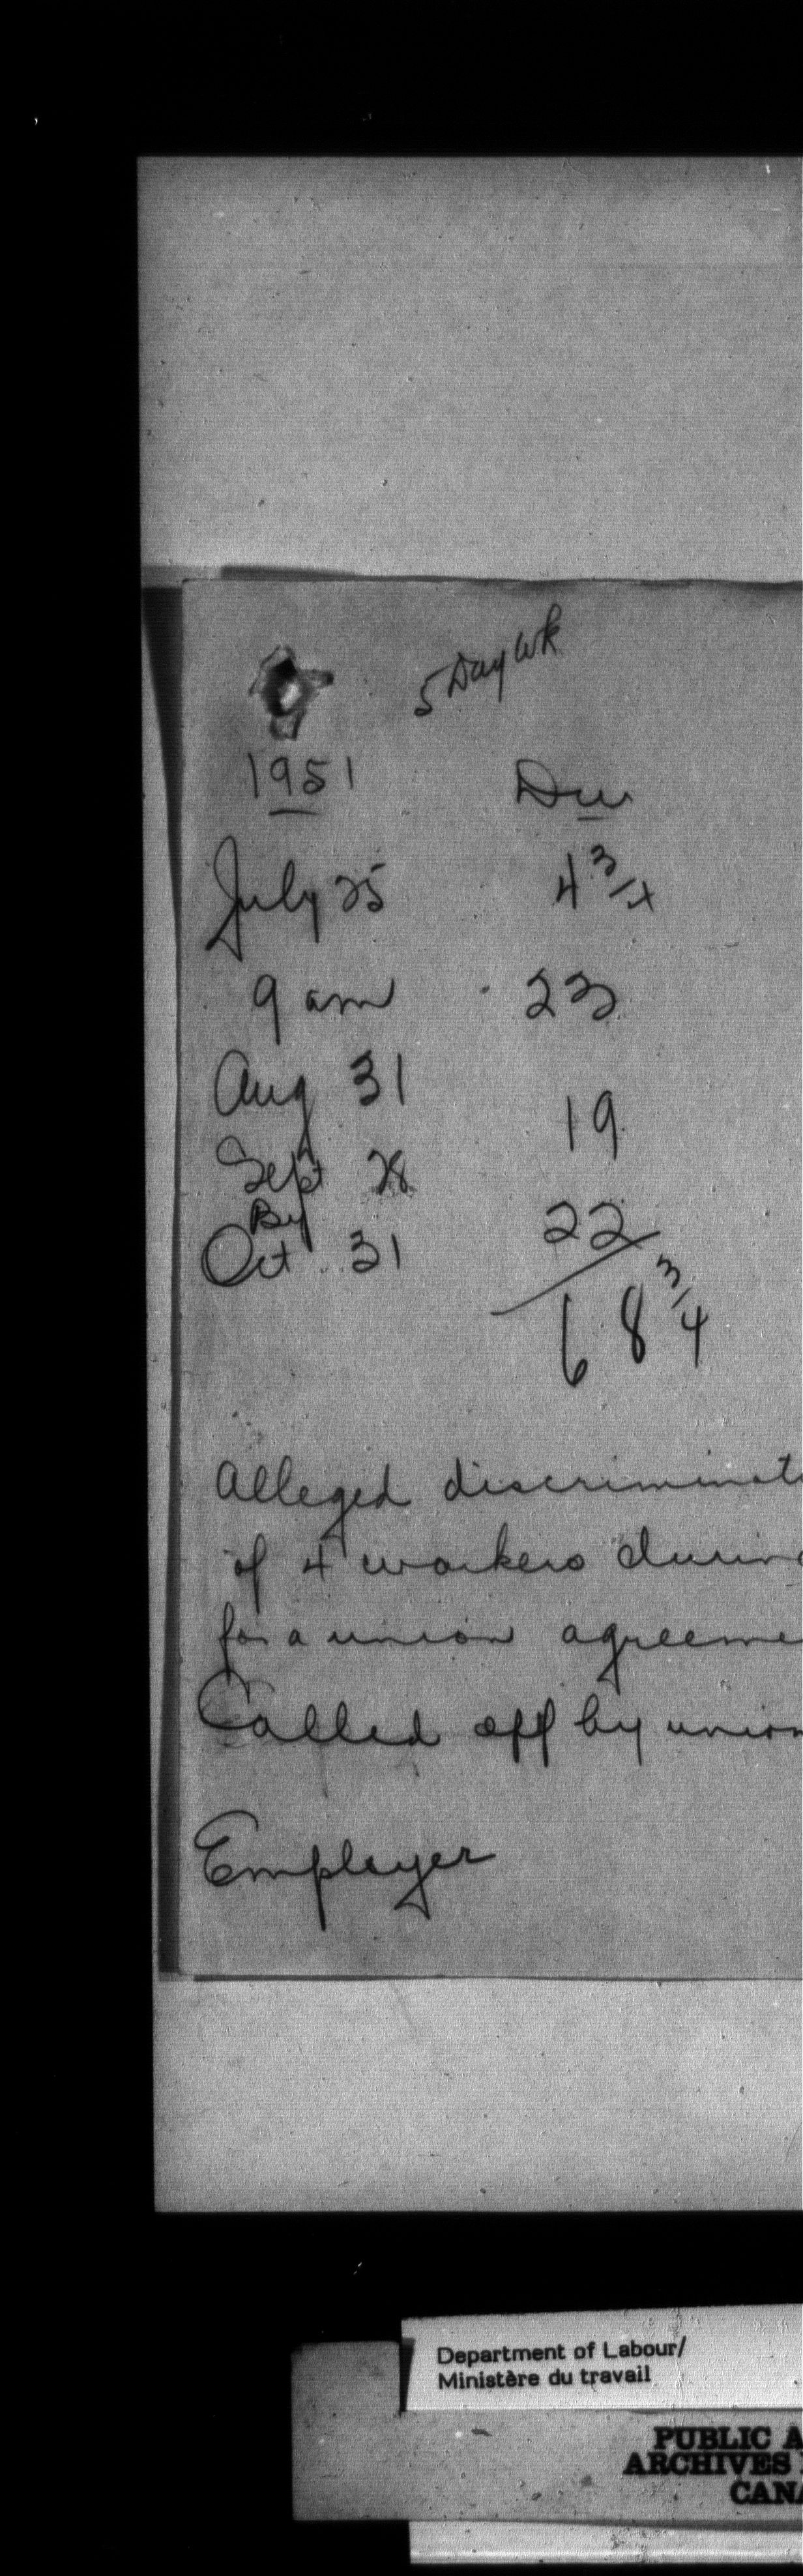 5 Day Wk
1951 Dw
July 25 4 3/4
9 am 23
Aug 31
19
Sept 28
By 22
Oct 31
68 3/4
Alleged discriminat
of 4 workers durin
for a union agreeme
Called off by union
Employer
Department of Labour/
Ministère du travail
PUBLIC A
ARCHIVES
CANA